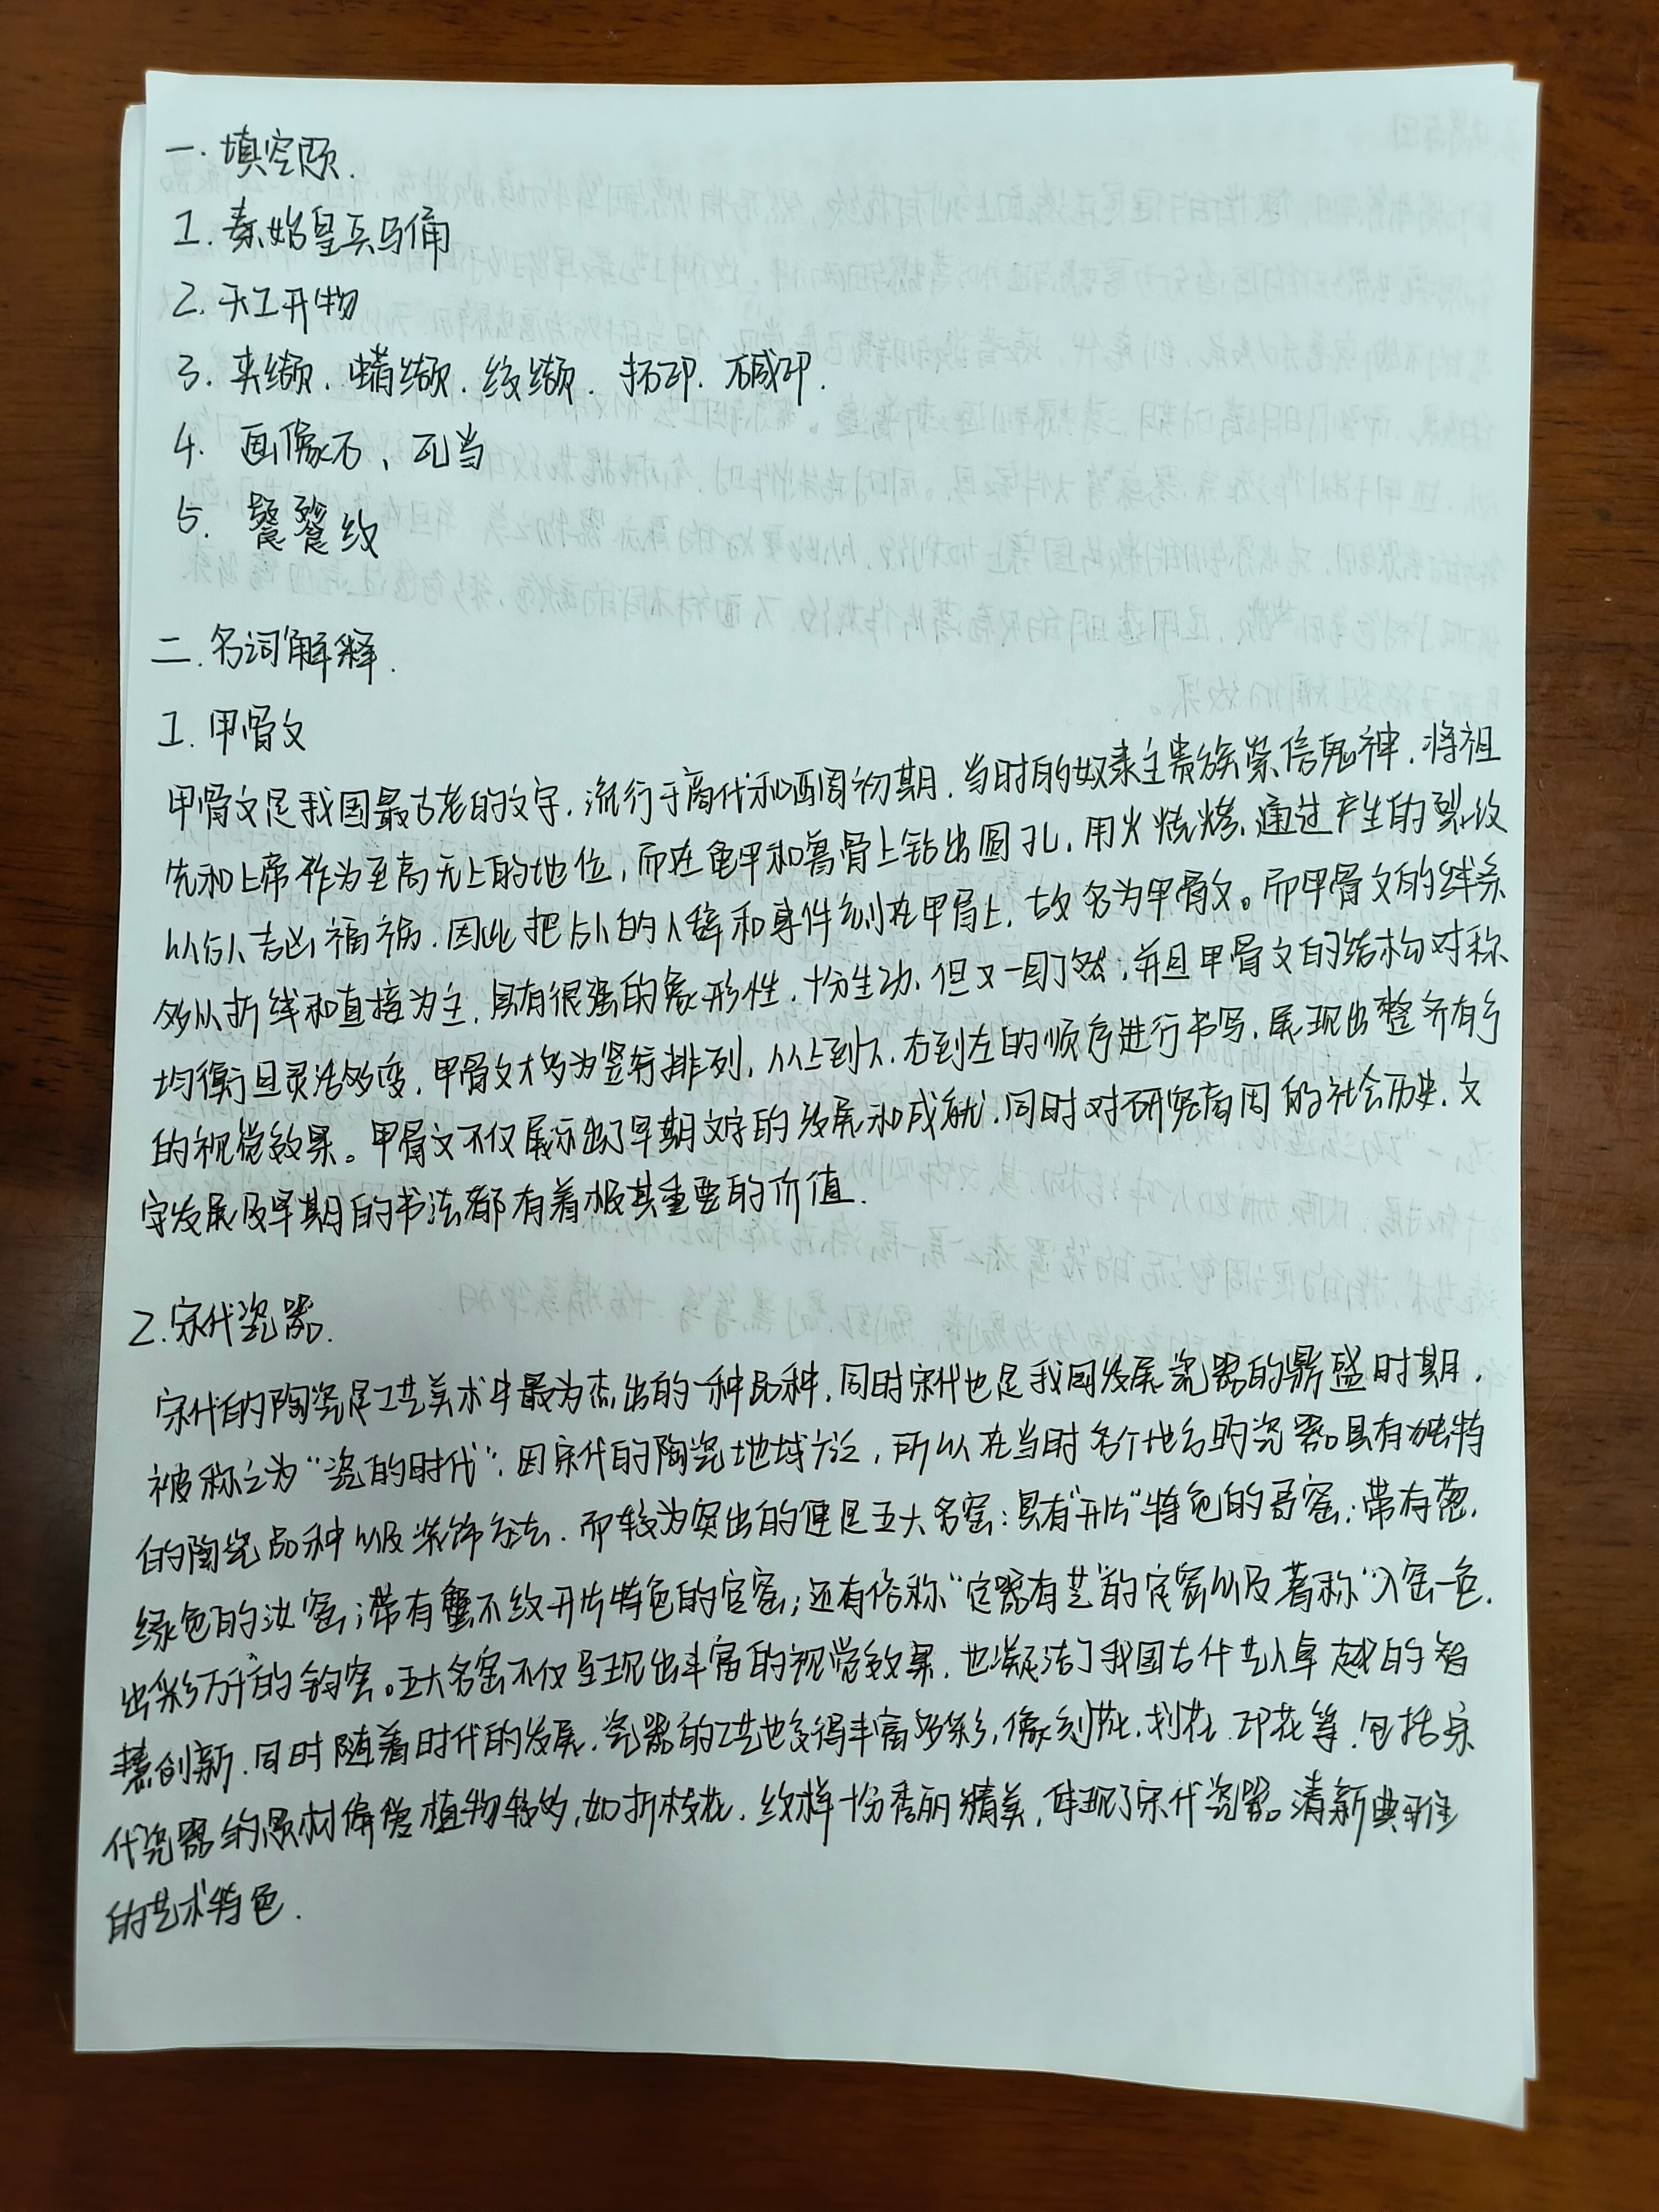 一. 填空题.
1. 秦始皇兵马俑
2. 天工开物
3. 夹缬. 蜡缬. 绞缬. 拓印. 碱印.
4. 画像石、瓦当
5. 饕餮纹
二. 名词解释.
1. 甲骨文
甲骨文是我国最古老的文字. 流行于商代和西周初期. 当时的奴隶主贵族崇信鬼神. 将祖
先和上帝作为至高无上的地位, 而在龟甲和兽骨上钻出圆孔. 用火烧烤. 通过产生的裂纹
以占卜吉凶祸福. 因此把占卜的人辞和事件刻在甲骨上. 故名为甲骨文。而甲骨文的线条
多以折线和直接为主. 具有很强的象形性. 十分生动. 但又一目了然; 并且甲骨文的结构对称
均衡且灵活多变. 甲骨文才多为竖行排列, 从上到下. 右到左的顺序进行书写. 展现出整齐有序
的视觉效果。甲骨文不仅展示出了早期文字的发展和成就. 同时对研究商周的社会历史. 文
字发展及早期的书法都有着极其重要的价值.
2. 宋代瓷器.
宋代的陶瓷是工艺美术中最为杰出的一种品种. 同时宋代也是我国发展瓷器的鼎盛时期.
被称之为“瓷的时代”. 因宋代的陶瓷地域广泛, 所以在当时各个地方的瓷器具有独特
的陶瓷品种以及装饰方法. 而较为突出的便是五大名窑: 具有“开片”特色的哥窑; 带有葱.
绿色的汝窑; 带有蟹爪纹开片特色的官窑; 还有俗称“定器有芝”的定窑以及著称“入窑一色.
出彩万千”的钧窑。五大名窑不仅呈现出丰富的视觉效果. 也凝结了我国古代艺人卓越的智
慧创新. 同时随着时代的发展. 瓷器的工艺也变得丰富多彩, 像刻花. 划花. 印花等. 包括宋
代瓷器的题材偏爱植物较多, 如折枝花. 纹样十分秀丽精美, 体现了宋代瓷器。清新典雅
的艺术特色.